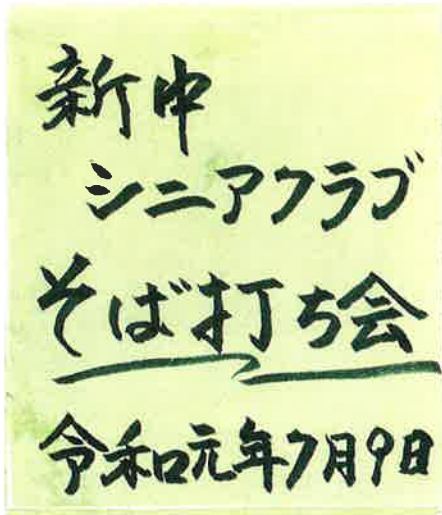 新中
シニアクラブ
そば打ち会
令和元年7月9日